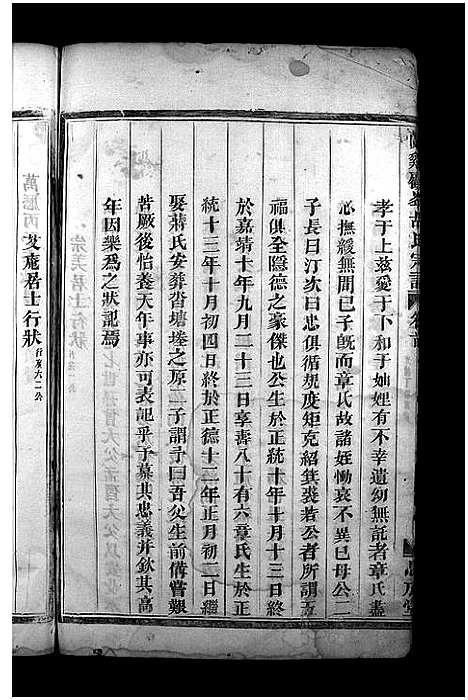 孝于上兹愛于下和于妯娌有不幸遺幼無託者章氏盡
心撫緩無間已子旣而章氏故諸姪慟哀不異已母公二
子長曰汀次曰忠俱循規度矩克紹箕裘若公者所謂壽
福俱全隱德之豪傑也公生於正統十年十月十三日終
於嘉靖十年九月二十三日享壽八十有六章氏生於正
統十三年十月初四日終於正德十二年正月初二日繼
娶蔣氏安葬沓塘塝之原二子謂予曰吾父生前備嘗艱
苦厥後怡養天年事亦可表記乎予慕其忠義并欽其高
年因樂爲之狀記焉
胡氏宗譜
艾菴居士行狀 行茂六二公
萬憲丙
宗美君士行狀